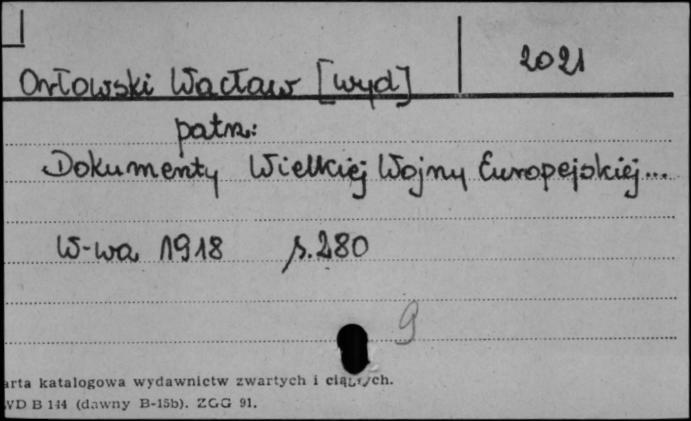 Orłowski Wacław [wyd] 2021
patrz:
Dokumenty Wielkiej Wojny Europejskiej...
W-wa 1918 s. 280
9
arta katalogowa wydawnictw zwartych i ciągłych.
WD B 144 (dawny B-15b). ZGG 91.